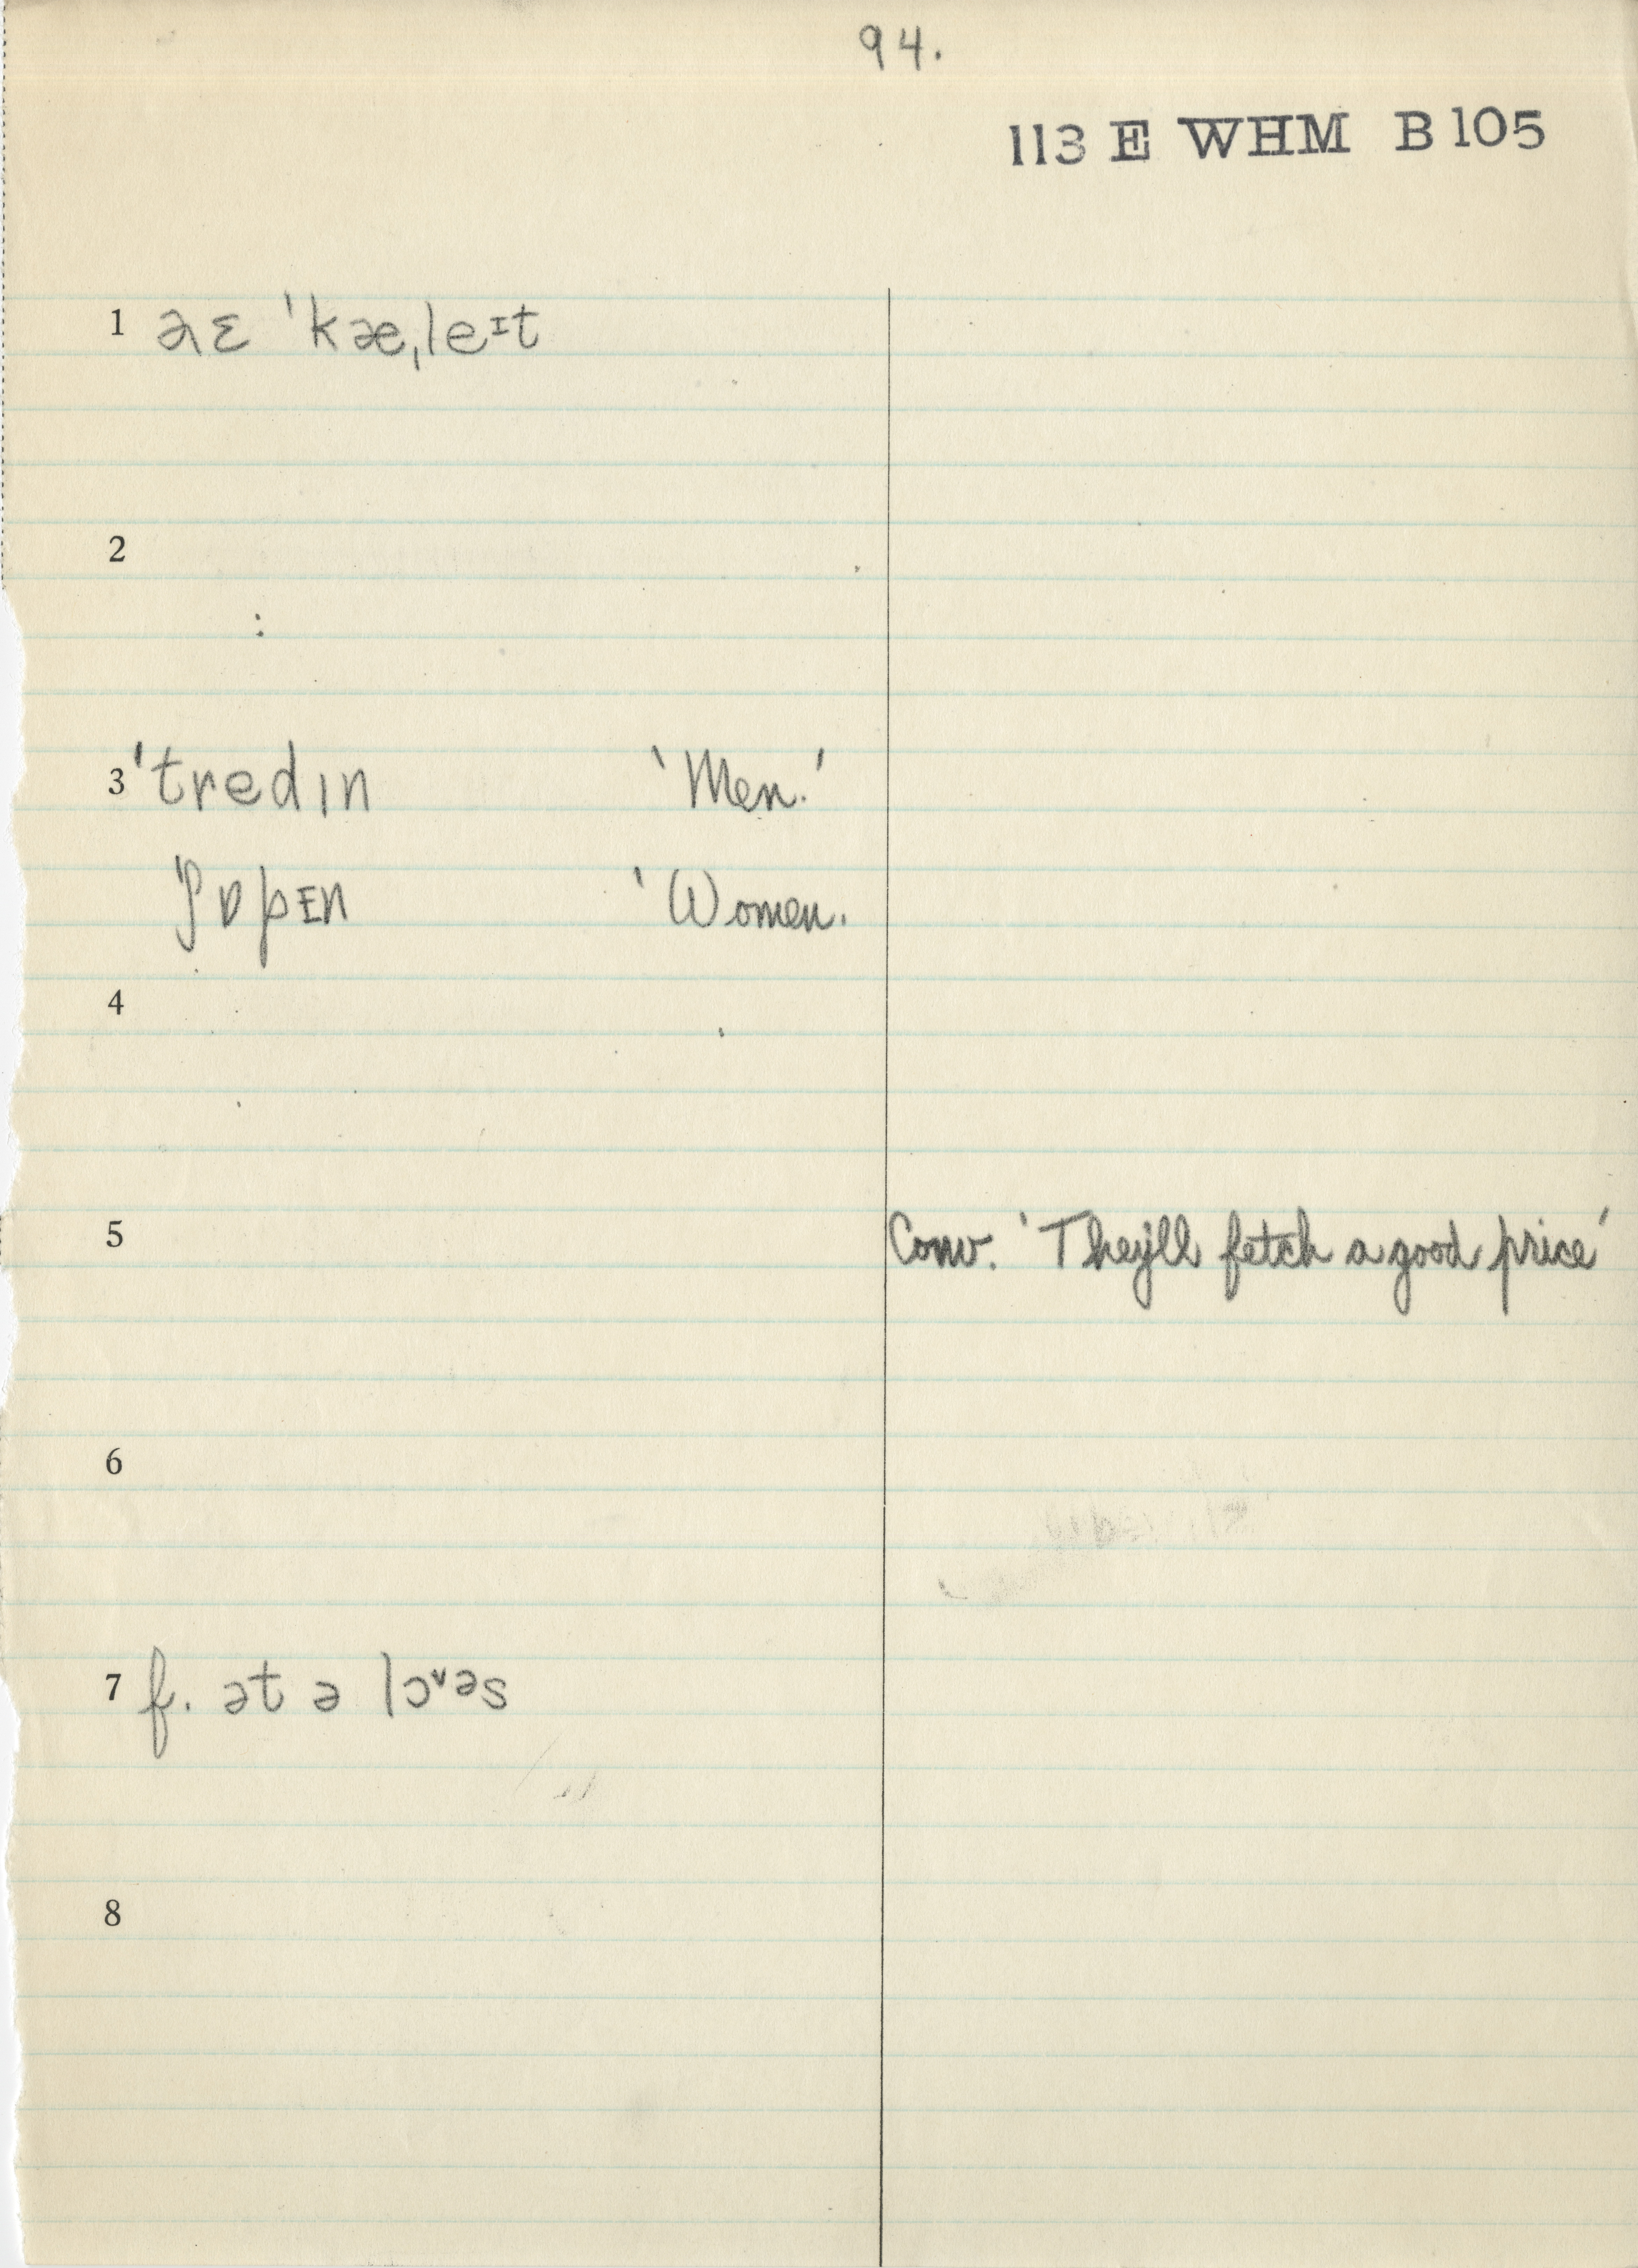 94.
113 E WHM B 105
1 əɛ ˈkæˌleᶦt
2
3 ˈtredın ‘Men.’
ˈʃɒpɪn ‘Women.
4
5 Conv. ‘They'll fetch a good price’
6
7 f. ət ə lɔᵛəs
8